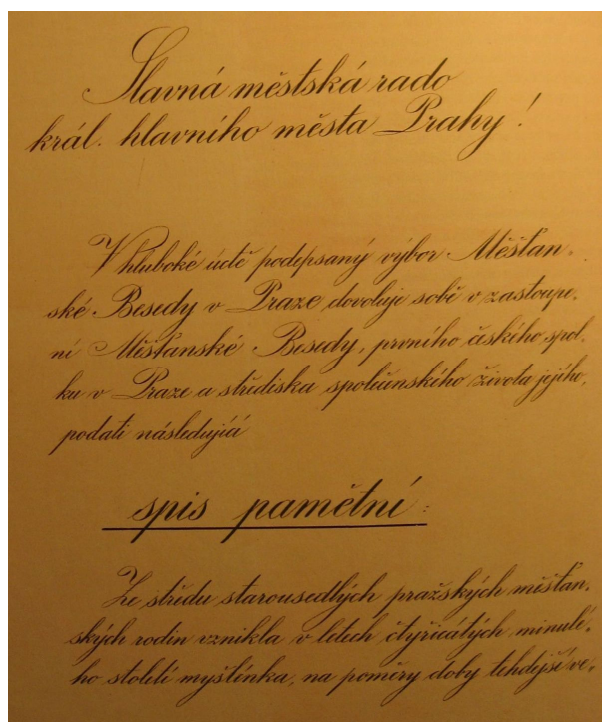 Slavná městská rado
král. hlavního města Prahy!
V hluboké úctě podepsaný výbor Měšťan-
ské Besedy v Praze dovoluje sobě v zastoupe-
ní Měšťanské Besedy, prvního českého spol-
ku v Praze a střediska společenského života jejího,
podati následující
spis pamětní:
Ze středu starousedlých pražských měšťan-
ských rodin vznikla v letech čtyřicátých minulé-
ho století myšlénka, na poměry doby tehdejší ve-